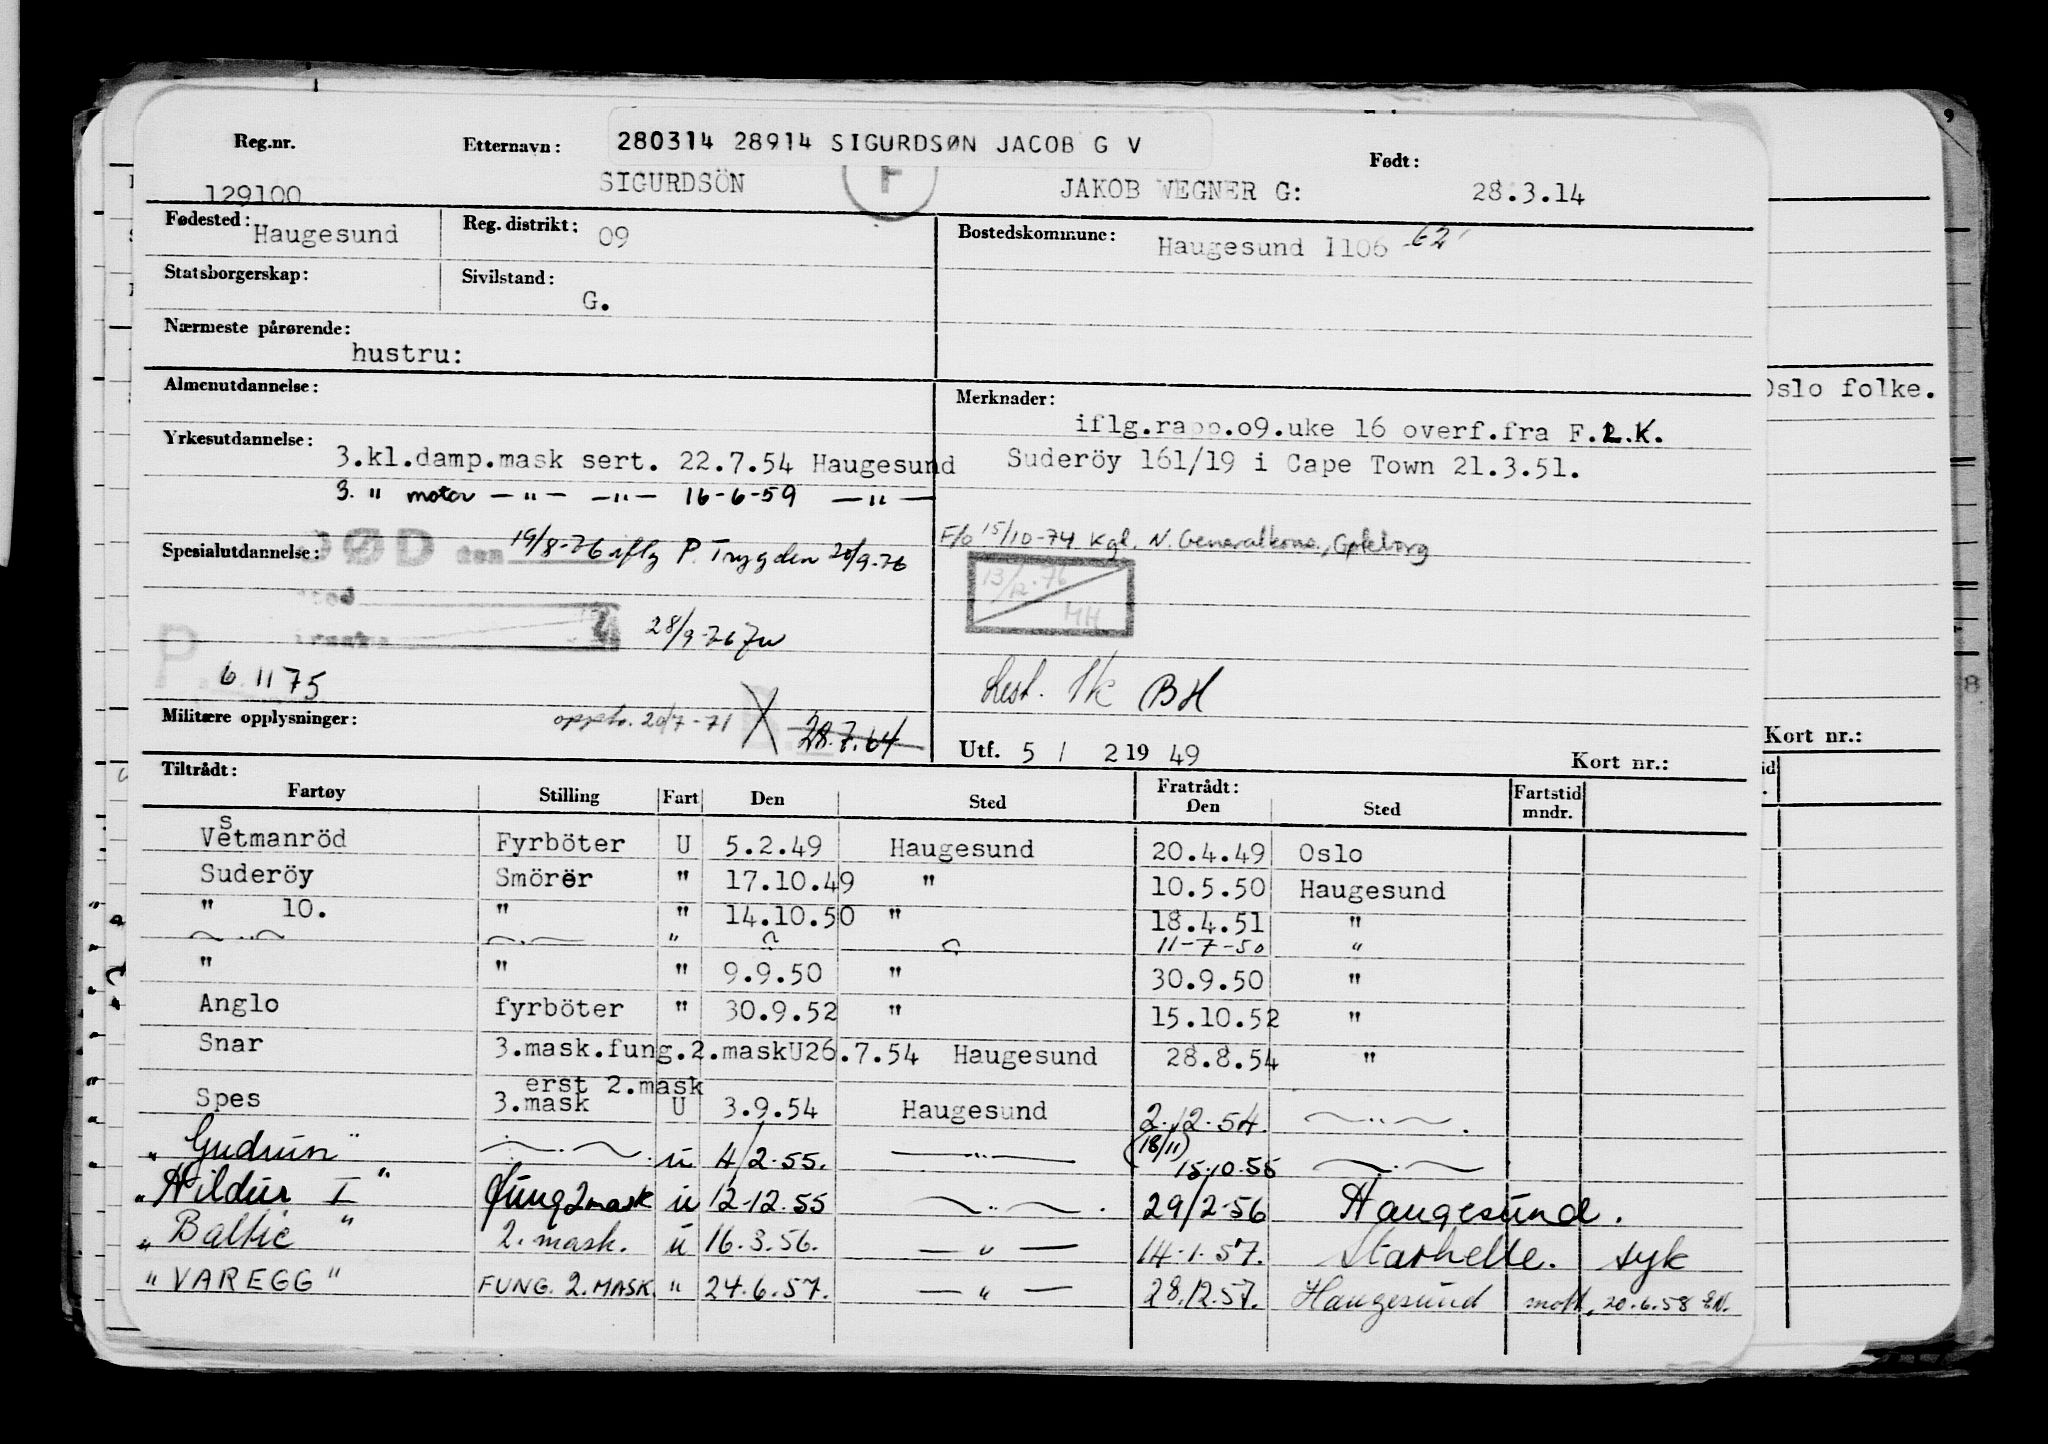 Reg.nr. Etternavn: 280314 28914 SIGURDSØN JACOB G V Født:
129100 SIGURDSÖN F JAKOB WEGNER G: 28.3.14
Fødested: Haugesund Reg. distrikt: 09 Bostedskommune: Haugesund 1106 62
Statsborgerskap: Sivilstand: G.
Nærmeste pårørende:
hustru:
Almenutdannelse: Merknader:
iflg.rapp.o9.uke 16 overf.fra F.L.K.
Yrkesutdannelse: 3.kl.damp.mask sert. 22.7.54 Haugesund Suderöy 161/19 i Cape Town 21.3.51.
3. " motor — " — — " — 16-6-59 — " —
Spesialutdannelse: DØD den 19/8-76 iflg P. Trygden 20/9-76 F/o 15/10-74 Kgl. N. Generalkons., Gøteborg
13/12.76
HH
28/9-76
P
6 11 75 BH
Militære opplysninger: 20/7-71 28.7.64 Utf. 5 / 2 19 49 Kort nr.:
Oslo folke.
Kort nr.:
Tiltrådt: Fratrådt:
Fartøy Stilling Fart Den Sted Den Sted Fartstid mndr.
Vestmanröd Fyrböter U 5.2.49 Haugesund 20.4.49 Oslo
Suderöy Smörer " 17.10.49 " 10.5.50 Haugesund
" 10. " " 14.10.50 " 18.4.51 "
— " — — " — " 11-7-50 "
" " " 9.9.50 " 30.9.50 "
Anglo fyrböter " 30.9.52 " 15.10.52 "
Snar 3.mask.fung.2.mask U 26.7.54 Haugesund 28.8.54 "
erst 2.mask
Spes 3.mask U 3.9.54 Haugesund 2.12.54. — " — .
"Gudrun" — " — . u 4/2.55. — " — (18/11) 15.10.55 — " —
"Hildur I" fung 2 mask u 12-12.55 — " — . 29/2-56 Haugesund.
"Baltic" 2. mask. u 16.3.56. — " — 14.1.57. Stathelle. syk
"VAREGG" FUNG. 2. MASK. " 24.6.57. — " — 28.12.57. Haugesund mott. 20.6.58